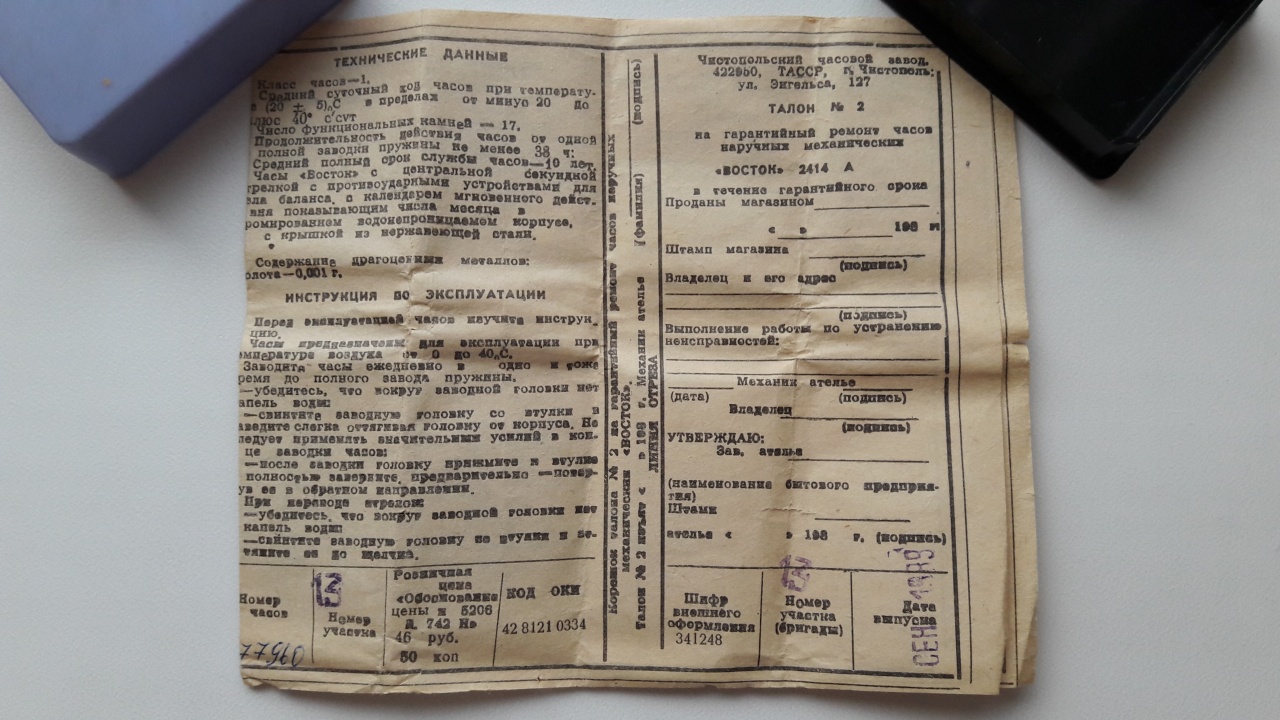 ТЕХНИЧЕСКИЕ ДАННЫЕ
Класс часов—1.
Средний суточный ход часов при температу-
е (20 ± 5)°С в пределах от минус 20 до
люс 40° с/сут
Число функциональных камней — 17.
Продолжительность действия часов от одной
полной заводки пружины не менее 38 ч:
Средний полный срок службы часов—10 лет.
Часы «Восток» с центральной секундной
трелкой с противоударными устройствами для
ла баланса, с календарем мгновенного дейст.
вия показывающим числа месяца в
ромированном водонепроницаемом корпусе,
с крышкой из нержавеющей стали.
Содержание драгоценных металлов:
олота—0,001 г.
ИНСТРУКЦИЯ ПО ЭКСПЛУАТАЦИИ
Перед эксплуатацией часов изучите инструк.
цию.
Часы предназначены для эксплуатации при
емпературе воздуха от 0 до 40°С.
Заводите часы ежедневно в одно и тоже
ремя до полного завода пружины.
—убедитесь, что вокруг заводной головки нет
апель воды:
—свинтите заводную головку со втулки и
аведите слегка оттягивая головку от корпуса. Не
ледует применять значительных усилий в кон-
це заводки часов:
—после заводки головку прижмите к втулке
полностью заверните, предварительно —повер-
ув ее в обратном направлении.
При переводе стрелок:
—убедитесь, что вокруг заводной головки нет
капель воды:
—свинтите заводную головку со втулки и от-
тяните ее до щелчка.
Номер
часов
77560
13
Номер
участка
Розничная
цена
«Обоснование
цены и 5206
Д 742 Не
46 руб.
50 коп
КОД ОКП
42 8121 0334
Корешок талона № 2 на гарантийный ремонт часов наручных
механических «ВОСТОК».
Талон № 2 изъят « » 198 г. Механик ателье (фамилия) (подпись)
ЛИНИЯ ОТРЕЗА
Чистопольский часовой завод.
422950, ТАССР, г. Чистополь:
ул. Энгельса, 127
ТАЛОН № 2
на гарантийный ремонт часов
наручных механических
«ВОСТОК» 2414 А
в течение гарантийного срока
Проданы магазином
« » 198 г
Штамп магазина
(подпись)
Владелец и его адрес
(подпись)
Выполнение работы по устранению
неисправностей:
Механик ателье
(дата) (подпись)
Владелец
(подпись)
УТВЕРЖДАЮ:
Зав. ателье
(наименование бытового предприя-
тия)
Штамп
ателье « » 198 г. (подпись)
Шифр
внешнего
оформления
341248
Номер
участка
(бригады)
Дата
выпуска
СЕН 1989